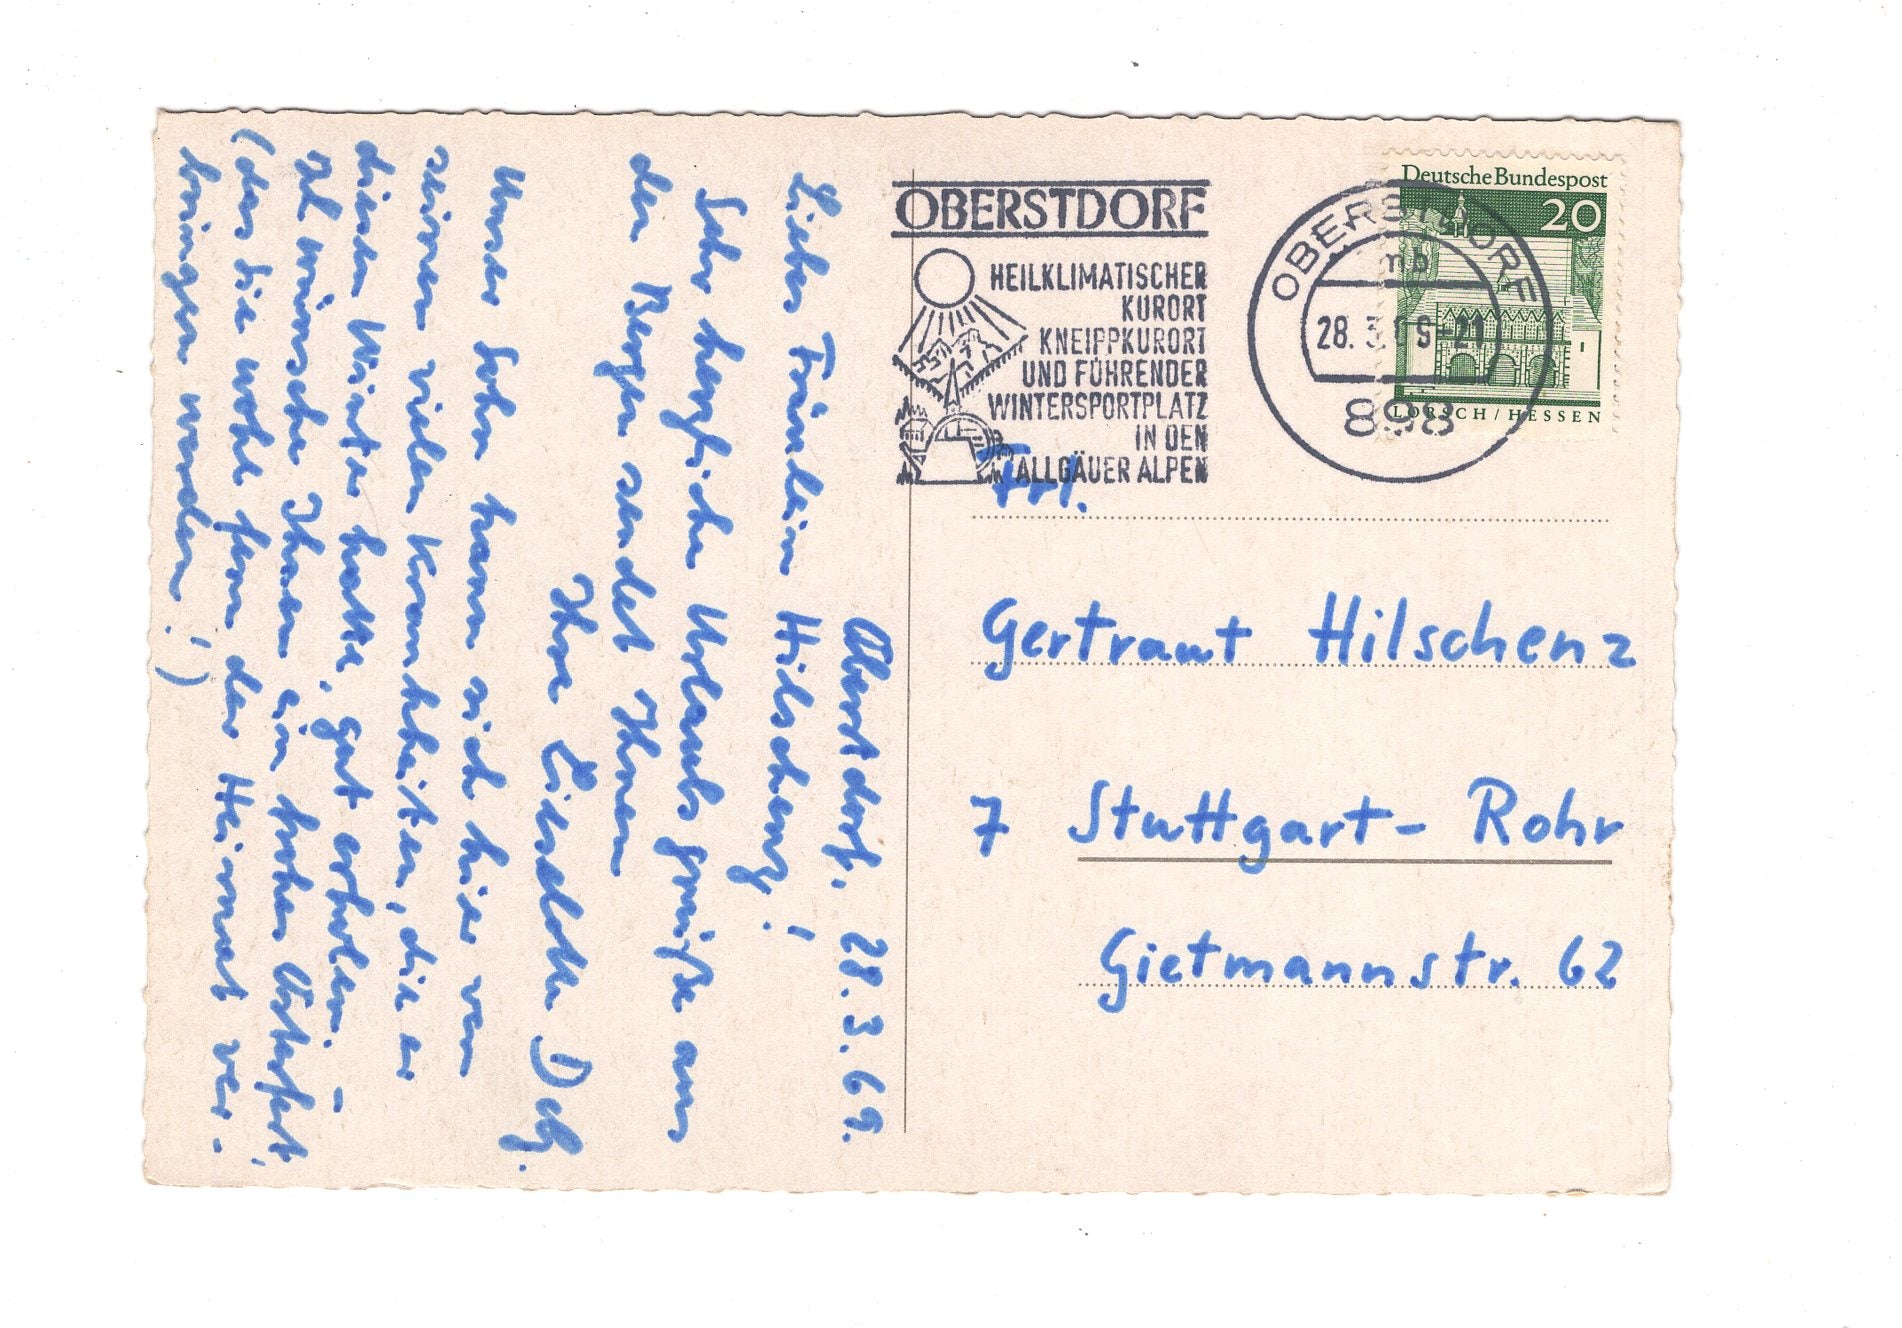 Oberstdorf, 28.3.69.
Liebes Fräulein Hilschenz!
Sehr herzliche Urlaubsgrüße aus
den Bergen sendet Ihnen
Ihre Liselotte
Unser Sohn kann sich hier von
seinen vielen Krankheiten, die er
diesen Winter hatte, gut erholen. -
Ich wünsche Ihnen ein frohes Osterfest
(das Sie wohl fern der Heimat ver-
bringen werden!)
OBERSTDORF
HEILKLIMATISCHER
KURORT
KNEIPPKURORT
UND FÜHRENDER
WINTERSPORTPLATZ
IN DEN
ALLGÄUER ALPEN
OBERSTDORF
mb
28. 3. 69-21
898
Deutsche Bundespost
20
LORSCH/HESSEN
Frl.
Gertraut Hilschenz
7 Stuttgart-Rohr
Gietmannstr. 62